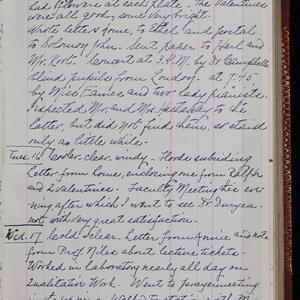 had flowers at each plate. The Valentines
were all good, some very bright.
Wrote letters home, to Ethel and postal
to Solomon John. Sent paper to Herl and
Mr. Root. Concert at 3 P.M. by Dr. Campbells
blind pupils from London. at 7:45
by Miss Eames and two lady pianists.
Expected Mr. and Mrs. Hathaway to the
latter, but did not find them, so staid
only a little while.
Tues. 16 Cooler, clear, windy. Floods subsiding
Letter from home, enclosing one from Ralph
and 2 Valentines. Faculty Meeting this eve-
ning after which I went to see Dr. Duryea
not with very great satisfaction.
Wed. 17 Cold & clear. Letter from Annie and note
from Prof. Niles about lecture tickets
Worked in Laboratory nearly all day on
Qualitative Work. Went to prayermeeting